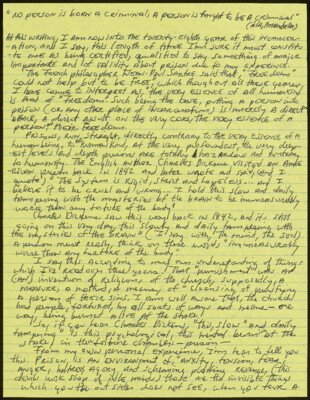 "No person is born a criminal; a person is taught to be a criminal"
At this writing, I am now into the twenty-eighth year of this incarcer-
ation, and I say, this length of time I'm sure it must constitu-
te me as being certified, qualified to say something of major
importance and not falsity about prison due to my experience.
The French philosopher Jean-Paul Sartre said that, "freedom"
could not help but to be free, which throughout all these years,
I have come to interpret as, the very essence of all humanity
is that of freedom. Such being the case, putting a person into
prison (or any other place of incarceration), is immediately a direct
attack, a direct assault on the very core, the very essence of a
person: their freedom.
Prisons, run straight, directly contrary to the very essence of a
human being, to humankind, at the very profoundest, the very deep-
est levels and depth prisons are totally harmful to
to humanity. The English author Charles Dickens visited an Amer-
ican prison back in 1842 and later wrote and say, (and I
quote) "The system is rigid, strict and hopeless... and I
believe it to be cruel and wrong... I hold this slow and daily
tampering with the mysteries of the brain to be immeasurably
worse than any torture of the body."
Charles Dickens saw this way back in 1842, and its still
going on this very day, this slow and daily tampering with
the mysteries of the brain" (I say with, the mind, the soul).
A person must really, think on these words "immeasurably
worse than any torture of the body."
I say this according to my own understanding of things
which I've read over these years: that punishment was an
invention of religions, of the church, supposedly a
measure, a method, a means, of cleansing, of purifying
a person of their sins. I am well aware that, the church
had people tortured, by all sorts of ways and means - one
way, being burned alive at the stake.
So, if you hear Charles Dickens, this slow "and daily
tampering" is this psychological, this mental burning at the
stake, in the torture chamber - prison -
From my own personal experience, I'm here to tell you
this: Prison, is an environment of, anxiety, tension, fear,
anger, hatred, agony, and scheming, plotting revenge, (the
devils work shop of idle minds) these are the invisible things
which, you the outsider does not see, when you tour a